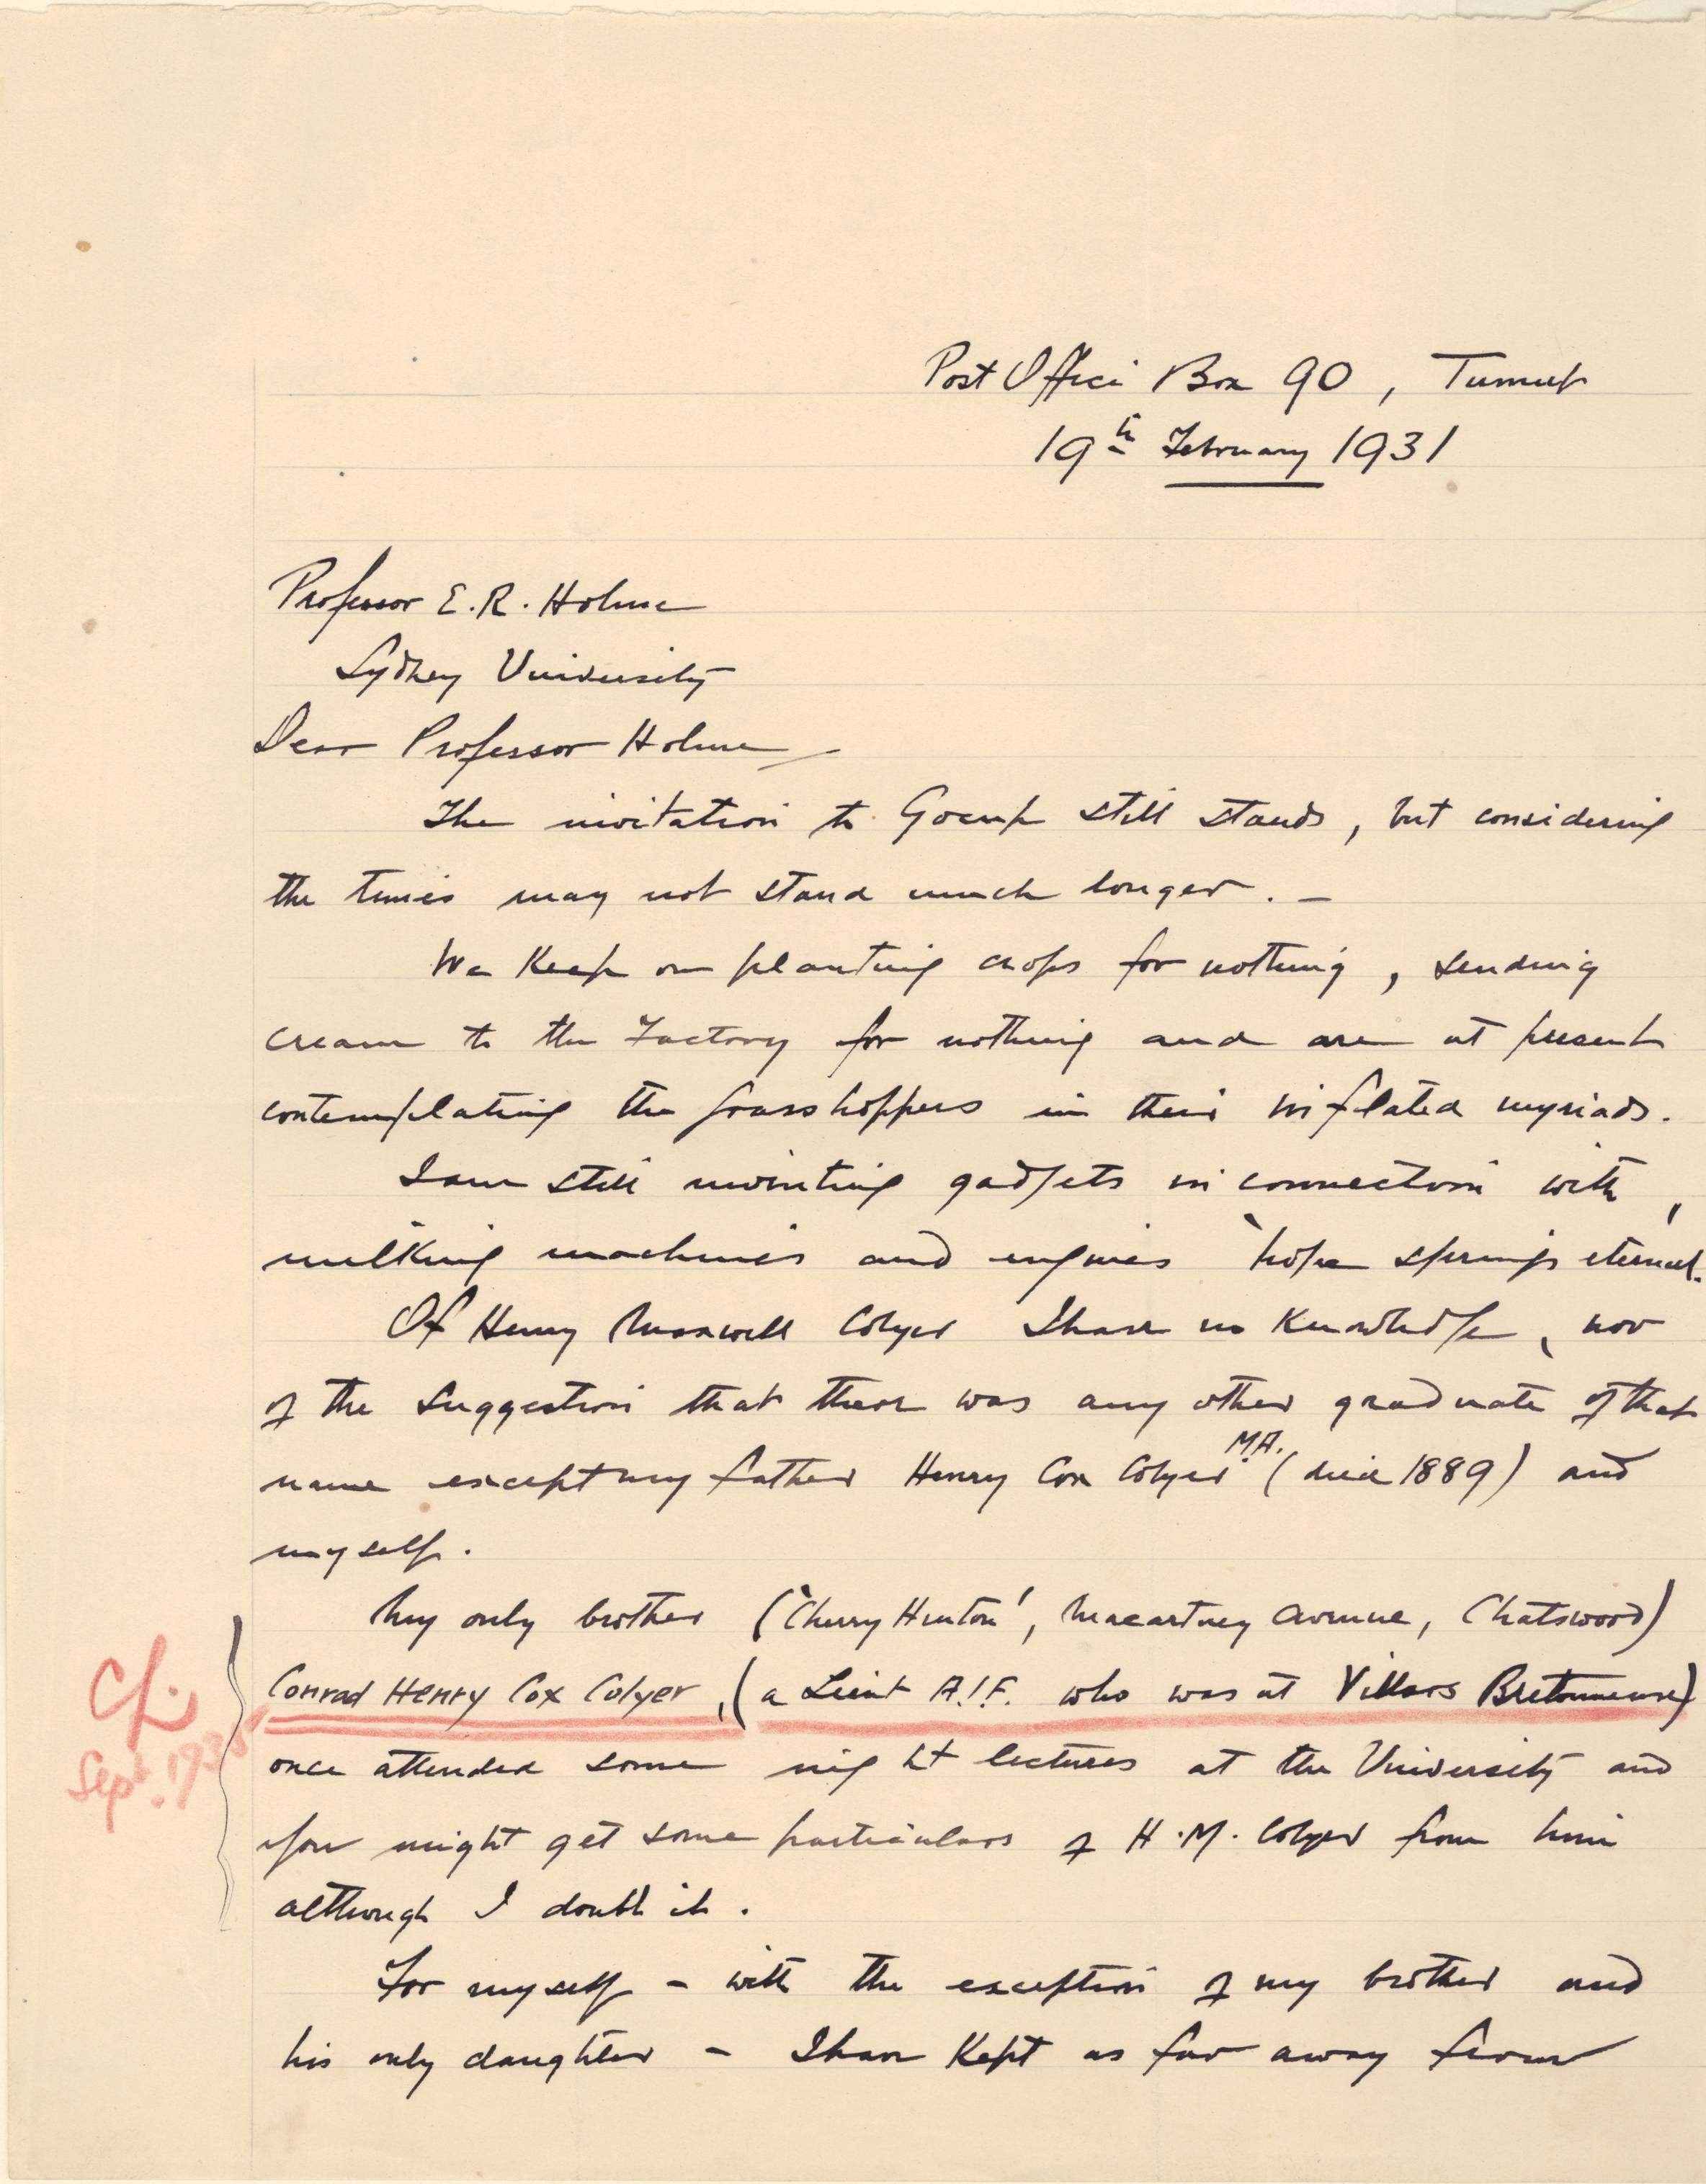 Post Office Box 90, Tumut
19th February 1931
Professor E.R. Holme
Sydney University
Dear Professor Holme
The invitation to Gocup still stands, but considering
the times may not stand much longer. –
We keep on planting crops for nothing, sending
cream to the Factory for nothing and are at present
contemplating the grasshoppers in their inflated myriads.
I am still inventing gadgets in connection with
milking machines and engines 'hope springs eternal.'
Of Henry Maxwell Colyer I have no knowledge, nor
of the suggestion that there was any other graduate of that
name except my father Henry Cox Colyer M.A. (died 1889) and
myself.
My only brother ('Cherry Hinton', Macartney Avenue, Chatswood)
Conrad Henry Cox Colyer, (a Lieut A.I.F. who was at Villars Bretonneux)
once attended some night lectures at the University and
you might get some particulars of H.M. Colyer from him
although I doubt it.
For myself – with the exception of my brother and
his only daughter – I have kept as far away from
Sept. 193